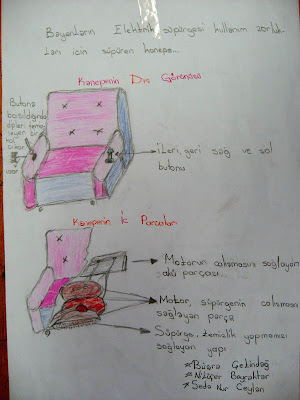 Bayanların Elektrik süpürgesi kullanım zorluk-
ları için süpüren kanepe...
Kanepenin Dış Görünüşü
Butona
basıldığında
ipleri temiz-
leyen bir
kol
çıkar.
İleri, geri sağ ve sol
butonu
Kanepenin İç Parçaları
Motorun çalışmasını sağlayan
akü parçası...
Motor, süpürgenin çalışmasını
sağlayan parça
Süpürge, temizlik yapmamızı
sağlayan yapı
* Büşra Gekindağ
* Nilüfer Bayraktar
* Seda Nur Ceylan